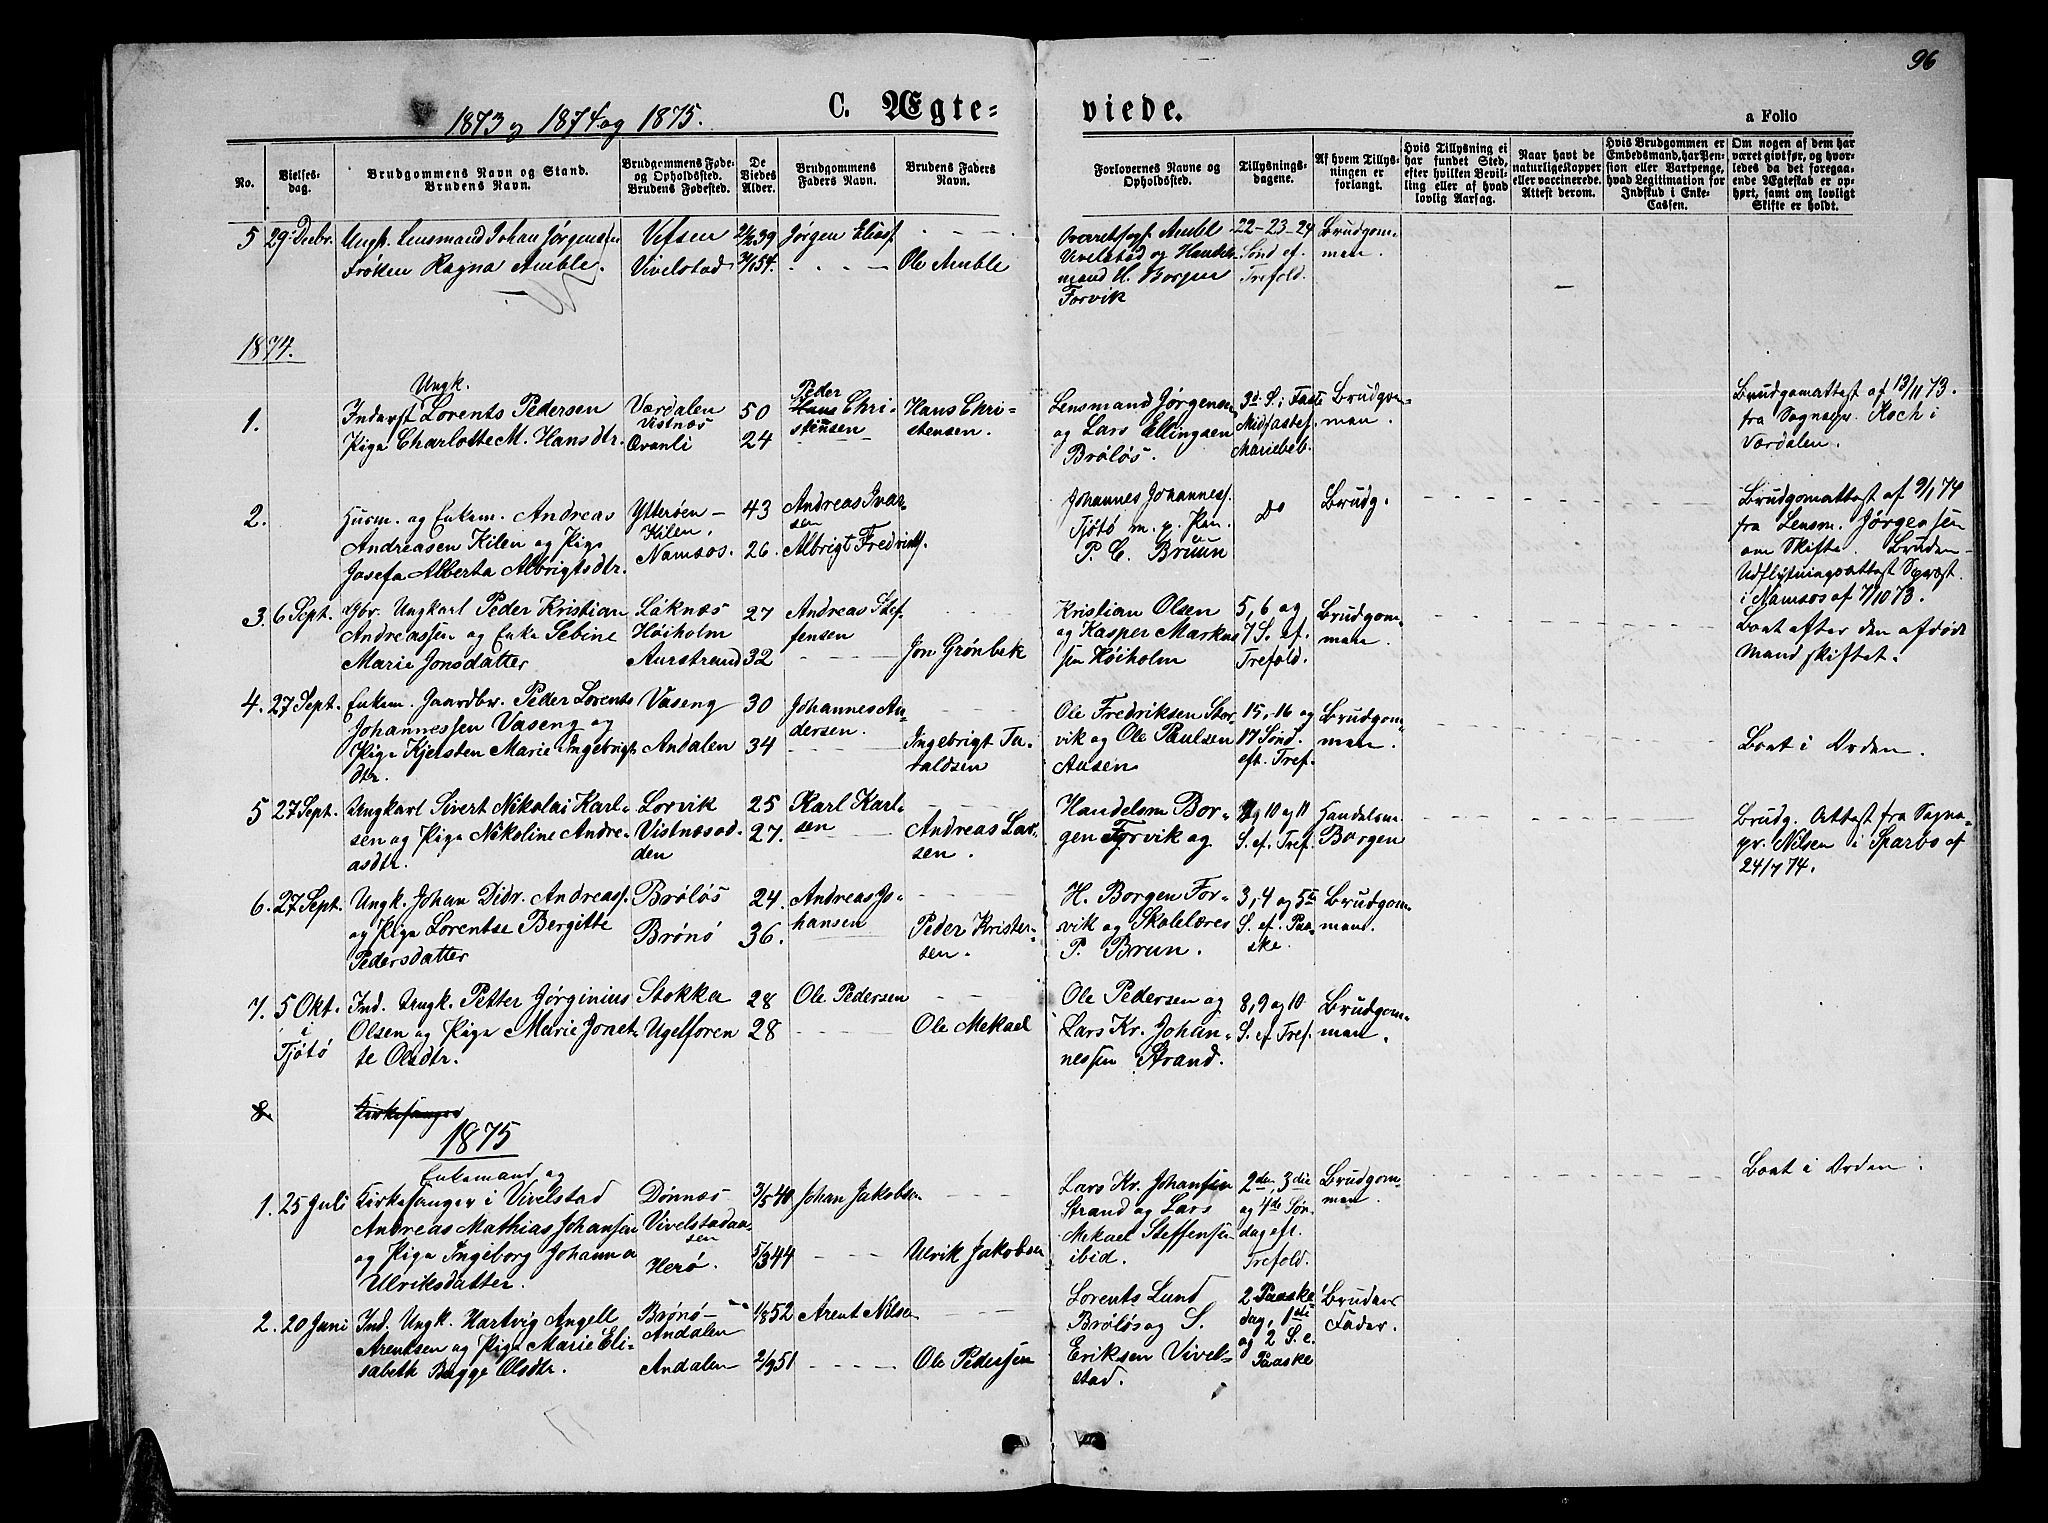 96
1873 og 1874 og 1875.
C. Ægte-
viede.
a Folio
No.
Vielses-
dag.
Brudgommens Navn og Stand.
Brudens Navn.
Brudgommens Føde-
og Opholdsted.
Brudens Fødested.
De
Viedes
Alder.
Brudgommens
Faders Navn.
Brudens Faders
Navn.
Forlovernes Navne og
Opholdsted.
Tillysnings-
dagene.
Af hvem Tillys-
ningen er
forlangt.
Hvis Tillysning ei
har fundet Sted,
efter hvilken Bevil-
ling eller af hvad
lovlig Aarsag.
Naar havt de
naturlige Kopper
eller vaccinerede.
Attest derom.
Hvis Brudgommen er
Embedsmand, har Pen-
sion eller Vartpenge,
hvad Legitimation for
Indskud i Enke-
Cassen.
Om nogen af dem har
været givt før, og hvor-
ledes da det foregaa-
ende Ægteskab er op-
hørt, samt om lovligt
Skifte er holdt.
5 29 Decbr. Ungk. Lensmand Johan Jørgensen Vefsen 39 Jørgen Eliass.
Frøken Ragna Amble. Vivelstad 54. Ole Amble
Amble
Vivelstad og Handels-
mand H. Borgen
Forvik
22-23-24
Sønd ef.
Trefold.
Brudgom-
men.
1874.
1.
Ungk.
Inderst Lorents Pedersen
Pige Charlotte M. Hansdtr.
Værdalen
Vistnæs
50
24
Peder
Hans Chri-
stensen
Hans Chri-
stensen.
Lensmand Jørgensen
og Lars Ellingsen
Brøløs.
3d. S. i Faste
Midfastes.
Mariebeb.
Brudgom-
men.
Brudgomattest af 13/11 73.
fra Sognepr. Koch i
Værdalen.
2.
Husm. og Enkem. Andreas
Andreasen Kilen og Pige
Josefa Alberta Albrigtsdtr.
Ytterøen-
Kilen,
Namsos.
43
26.
Andreas Ivar-
sen
Albrigt Fredriks.
Johannes Johanness.
Tjøtø m. p. Pen.
P. C. Bruun
Do
Brudg.
Brudgomattest af 9/1 74
fra Lensm. Jørgensen
om Skifte. Bruden
Udflytningsattest Spræst.
i Namsos af 7/10 73.
3. 6 Sept. Gbr. Ungkarl Peder Kristian
Andreassen og Enke Sebine
Marie Jonsdatter
Laknæs
Høiholm
Aurstrand
27
32
Andreas Stef-
fensen
Jon Grønbek
Kristian Olsen
og Kasper Markus
sen Høiholm
5, 6 og
7 S. ef.
Trefold.
Brudgom-
men.
Boet efter den afdøde
Mand skiftet.
4. 27 Sept. Enkem. Gaardbr. Peder Lorents
Johannessen Vaseng og
Pige Kjersten Marie Ingebrigts
dtr.
Vaseng
Andalen
30
34
Johannes An-
dersen.
Ingebrigt Ta-
raldsen
Ole Fredriksen Stor-
vik og Ole Paulsen
Ausen
15, 16 og
17 Sønd.
eft. Tref.
Brudgom-
men.
Boet i Orden.
5 27 Sept. Ungkarl Sivert Nikolai Karl-
sen og Pige Nikoline Andre-
asdtr.
Lorvik
Vistnæsod-
den
25
27.
Karl Karl-
sen
Andreas Lar-
sen.
Handelsm Bor-
gen Forvik og
9, 10 og 11
S. ef. Tref.
Handelsm.
Borgen
Brudg. Attest fra Sogne-
pr. Nilsen i Sparbo af
24/7 74.
6. 27 Sept. Ungk. Johan Didr. Andreass.
og Pige Lorentse Bergitte
Pedersdatter
Brøløs
Brønø
24.
36.
Andreas Jo-
hansen
Peder Krister-
sen.
H. Borgen For-
vik og Skolelærer
P. Brun.
3, 4 og 5te
S. ef. Paa-
ske.
Brudgom-
men.
7. 5 Okt.
i
Tjøtø
Ind. Ungk. Petter Jørginius
Olsen og Pige Marie Jonet-
te Olsdtr.
Stokka
Ugelforen
28
28
Ole Pedersen
Ole Mekael
Ole Pedersen og
Lars Kr. Johan-
nessen Strand.
8, 9 og 10
S. ef Tref.
Brudgom-
men.
8.
Kirkesanger
1875
1. 25 Juli
Enkemand og
Kirkesanger i Vivelstad
Andreas Mathias Johansen
og Pige Ingeborg Johanna
Ulriksdatter.
Dønnæs
Vivelstadaa-
sen
Herø.
3/5 40
5/3 44
Johan Jakobsen
Ulrik Jakobsen
Lars Kr. Johansen
Strand og Lars
Mekael Steffensen
ibid.
2den, 3die
og 4de Søn-
dag eft.
Trefold.
Brudgom-
men.
Boet i Orden.
2. 20 Juni Ind. Ungk. Hartvig Angell
Arentsen og Pige Marie Eli-
sabeth Bugge Olsdtr.
Brønø-
Andalen
Andalen
1/8 52
2/9 51
Arent Nilsen
Ole Pedersen
Lorents Lund
Brøløs og S.
Eriksen Vivel-
stad.
2 Paaske-
dag, 1ste
og 2 S. e.
Paaske
Brudens
Fader.